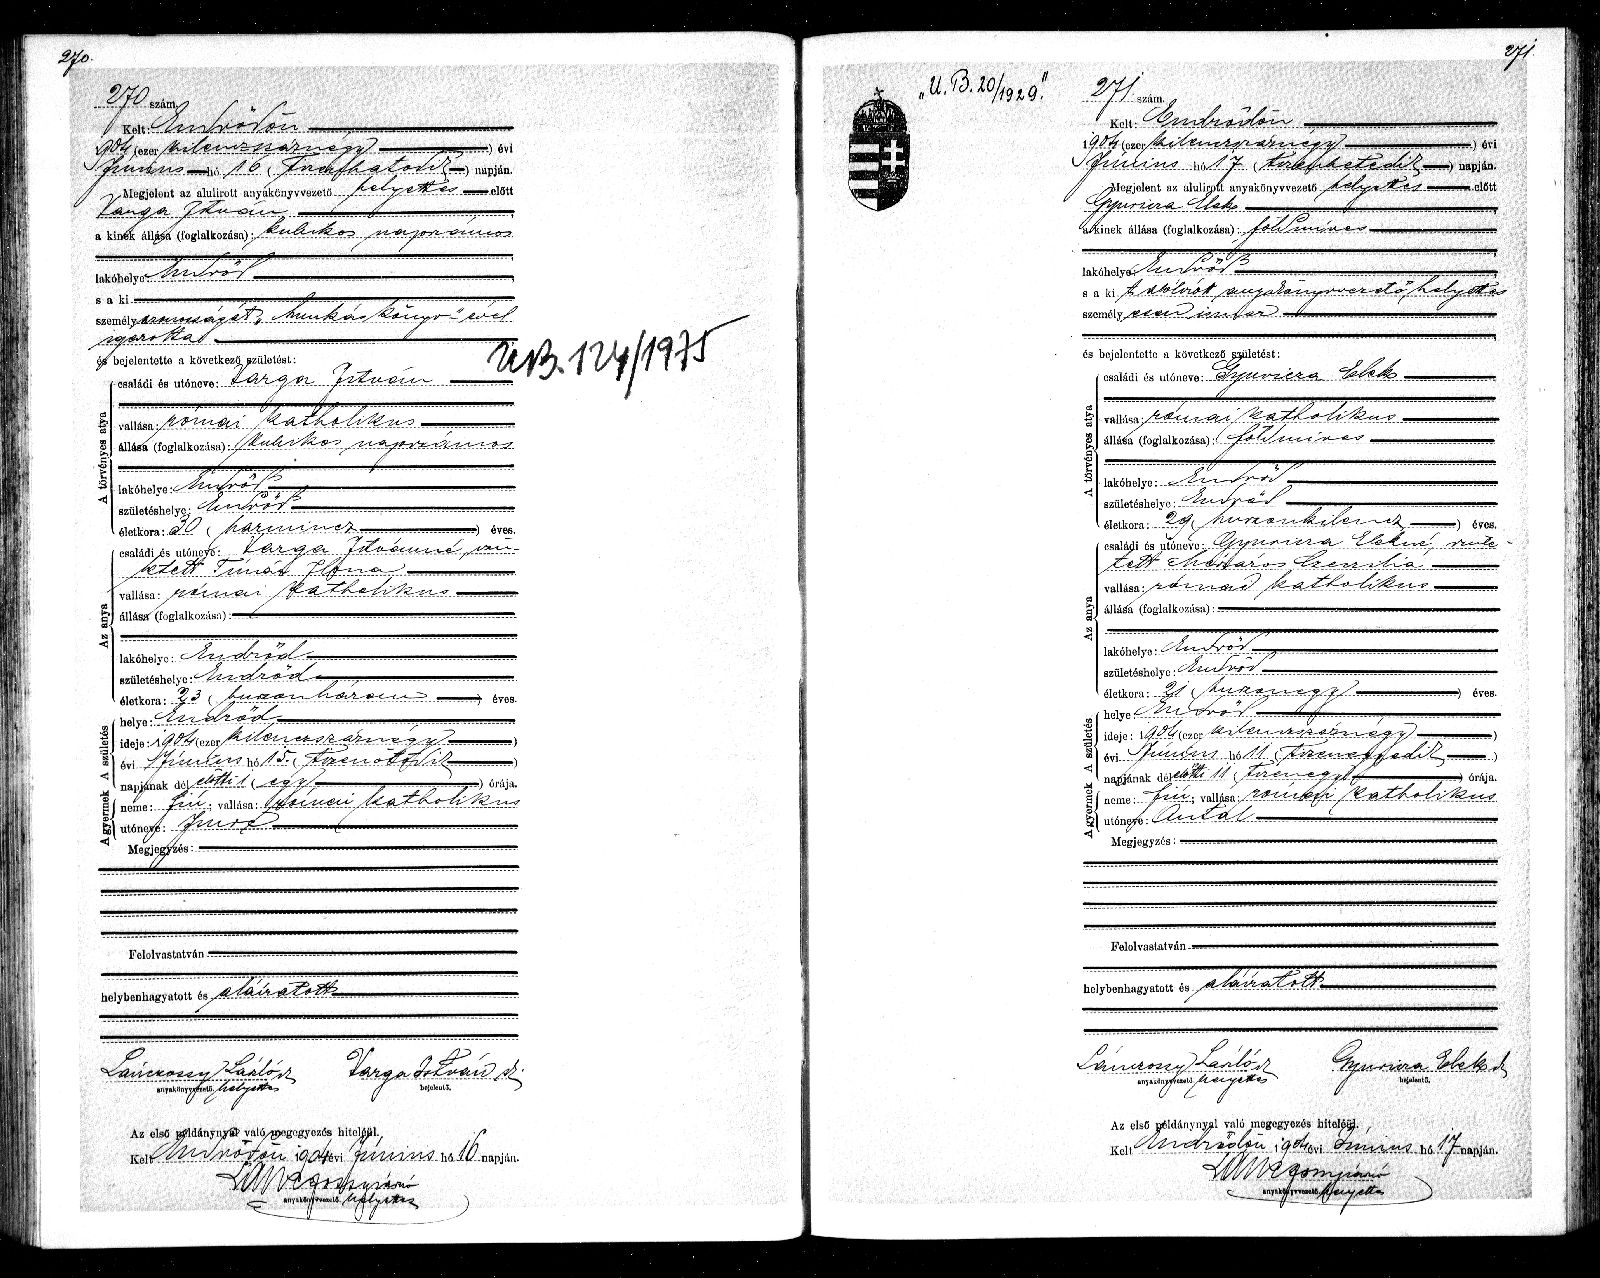 270.
270 szám.
Kelt: Endrődön
1904 (ezer kilenczszáznégy) évi
Június hó 16 (tizenhatodik) napján.
Megjelent az alulirott anyakönyvvezető helyettes előtt
Varga István
a kinek állása (foglalkozása): kubikos napszámos
lakóhelye: Endrőd
s a ki
személyazonosságát „Munkás könyv"-ével
igazolta
és bejelentette a következő születést:
A törvényes atya
családi és utóneve: Varga István
vallása: római katholikus
állása (foglalkozása): kubikos napszámos
lakóhelye: Endrőd
születéshelye: Endrőd
életkora: 30 (harmincz) éves.
Az anya
családi és utóneve: Varga Istvánné, szü-
letett Tímár Ilona
vallása: római katholikus
állása (foglalkozása):
lakóhelye: Endrőd
születéshelye: Endrőd
életkora: 23 (huszonhárom) éves.
A születés
helye: Endrőd
ideje: 1904 (ezer kilenczszáznégy)
évi Június hó 15. (tizenötödik)
napjának dél előtti 1 (egy) órája.
A gyermek
neme: fiú; vallása: római katholikus
utóneve: Imre
Megjegyzés:
Felolvastatván
helybenhagyatott és aláiratott
Lánczossy László sk Varga István sk.
anyakönyvvezető helyettes bejelentő.
Az első példánynyal való megegyezés hiteléül.
Kelt Endrődön 1904 évi Június hó 16 napján.
anyakönyvvezető helyettes
U.B. 124/1975
271.
„U. B. 20/1929."
271 szám.
Kelt: Endrődön
1904 (ezer kilenczszáznégy) évi
Június hó 17 (tizenhetedik) napján.
Megjelent az alulirott anyakönyvvezető helyettes előtt
Gyuricza Elek
a kinek állása (foglalkozása): földmíves
lakóhelye: Endrőd
s a ki t alólírott anyakönyvvezető helyettes
személyesen ismer
és bejelentette a következő születést:
A törvényes atya
családi és utóneve: Gyuricza Elek
vallása: római katholikus
állása (foglalkozása): földmíves
lakóhelye: Endrőd
születéshelye: Endrőd
életkora: 29 (huszonkilencz) éves.
Az anya
családi és utóneve: Gyuricza Elekné, szüle-
tett Mészáros Czeczilia
vallása: római katholikus
állása (foglalkozása):
lakóhelye: Endrőd
születéshelye: Endrőd
életkora: 21 (huszonegy) éves.
A születés
helye Endrőd
ideje: 1904 (ezer kilenczszáznégy)
évi Június hó 11 (tizenegyedik)
napjának dél előtti 11 (tizenegy) órája.
A gyermek
neme: fiú; vallása: római katholikus
utóneve: Antal
Megjegyzés:
Felolvastatván
helybenhagyatott és aláiratott
Lánczossy László sk Gyuricza Elek sk
anyakönyvvezető helyettes bejelentő.
Az első példánynyal való megegyezés hiteléül.
Kelt Endrődön 1904 évi Június hó 17 napján.
anyakönyvvezető helyettes